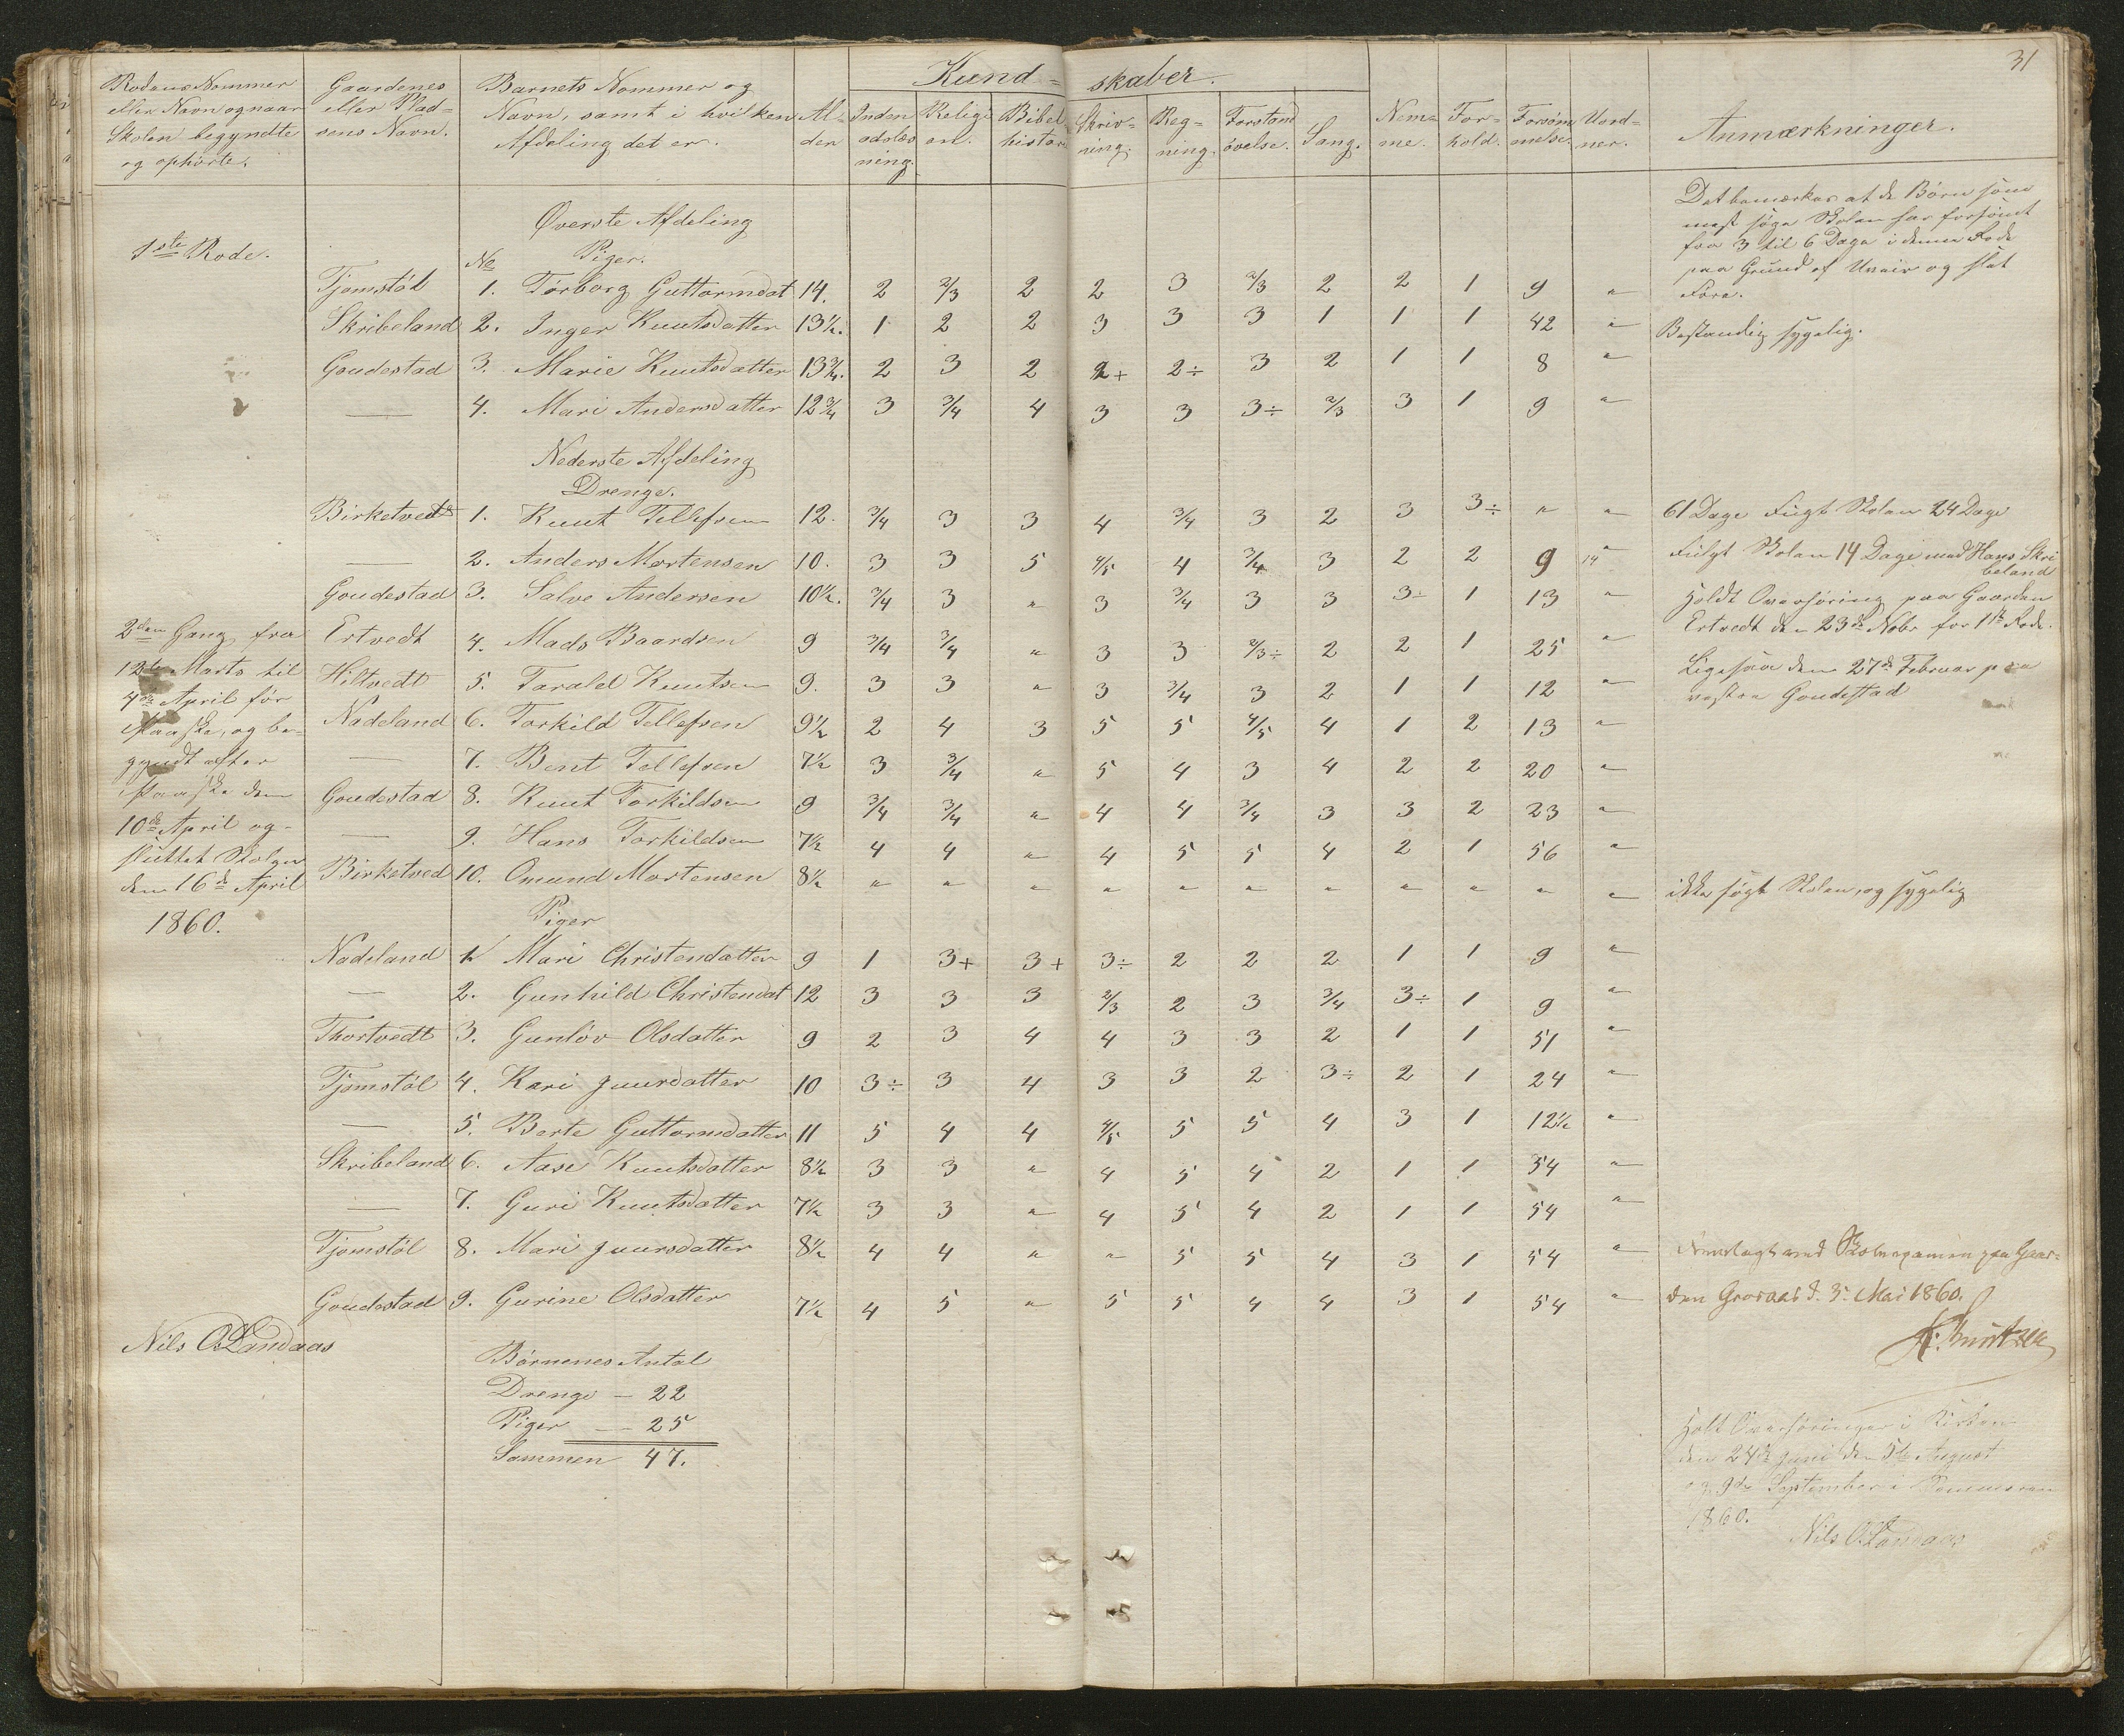 31
Rodens Nommer eller Navn og naar Skolen begyndte og ophørte.
Gaardenes eller Pladsens Navn.
Barnets Nommer og Navn, samt i hvilken Afdeling det er.
Alder
Kundskaber.
Indenadslæsning.
Religion.
Bibelhistorie
Skrivning.
Regning.
Forstandsøvelse.
Sang.
Nemme.
Forhold.
Forsømmelse.
Vordner.
Anmærkninger.
1ste Rode.
Øverste Afdeling
Piger.
No
Tjomstøl 1. Torborg Guttormdat 14. 2 2/3 2 2 3 2/3 2 2 1 9 "
Skribeland 2. Inger Knutsdatter 13½. 1 2 2 3 3 3 1 1 1 42 "
Goudestad 3. Marie Knutsdatter 13¾. 2 3 2 2+ 2÷ 3 2 1 1 8 "
— 4. Mari Andersdatter 12¾ 3 3/4 4 3 3 3÷ 2/3 3 1 9 "
Det bemærkes at de Børn som
mest søge Skolen har forsømt
fra 3 til 6 Dage i denne Rode
paa Grund af Uveir og slet
Føre.
Bestandig sygelig.
Nederste Afdeling
Drenge.
Birketvedt 1. Knut Tellefsen 12. 3/4 3 3 4 3/4 3 2 3 3÷ " " 61 Dage Fulgt Skolen 24 Dage
— 2. Anders Mortensen 10. 3 3 5 4/5 4 3/4 3 2 2 9 14 " Fulgt Skolen 14 Dage med Hans Skribeland
Goudestad 3. Salve Andersen 10½. 3/4 3 " 3 3/4 3 3 3÷ 1 13 "
Ertvedt 4. Mads Baardsen 9 3/4 3/4 " 3 3 2/3÷ 2 2 1 25 "
Hiltvedt 5. Tarald Knutsen 9. 3 3 " 3 3/4 3 2 1 1 12 "
Nadeland 6. Torkild Tellefsen 9½ 2 4 3 5 5 4/5 4 1 2 13 "
— 7. Bent Tellefsen 7½ 3 3/4 " 5 4 3 4 2 2 20 "
Goudestad 8. Knut Torkildsen 9 3/4 3/4 " 4 4 3/4 3 3 2 23 "
— 9. Hans Torkildsen 7½ 4 4 " 4 5 5 4 2 1 56 "
Birketved 10. Omund Mortensen 8½ " " " " " " " " " " " ikke søgt Skolen, og sygelig
Holdt Overhøring paa Gaarden
Ertvedt den 23de Nobr for 1ste Rode.
Ligesaa den 27de Februar paa
vestre Goudestad
2den Gang fra
12te Marts til
4de April før
Paaske, og be-
gyndt efter
Paaske den
10de April og
sluttet Skolen
den 16de April
1860.
Piger
Nadeland 1. Mari Christensdatter 9 1 3+ 3+ 3÷ 2 2 2 1 1 9 "
— 2. Gunhild Christensdat 12 3 3 3 2/3 2 3 3/4 3÷ 1 9 "
Thortvedt 3. Gunløv Olsdatter 9 2 3 4 4 3 3 2 1 1 51 "
Tjomstøl 4. Kari Juursdatter 10 3÷ 3 4 3 3 2 3÷ 2 1 24 "
— 5. Berte Guttormsdatter 11 5 4 4 4/5 5 5 4 3 1 12½ "
Skribeland 6. Aase Knutsdatter 8½ 3 3 " 4 5 4 2 1 1 54 "
— 7. Guri Knutsdatter 7½ 3 3 " 4 5 4 2 1 1 54 "
Tjomstøl 8. Mari Juursdatter 8½ 4 4 " " 5 5 4 3 1 54 "
Goudestad 9. Gurine Olsdatter 7½ 4 5 " 5 5 4 4 3 1 54 "
Fremlagt ved Skoleexamen paa Gaar-
den Graraas d. 3. Mai 1860.
Nils O Landaas
Børnenes Antal
Drenge – 22
Piger – 25
Sammen 47.
Holt Overhøringer i Kirken
den 24de Juni den 5te August
og 9de September i Sommeren
1860.
Nils O. Landaas